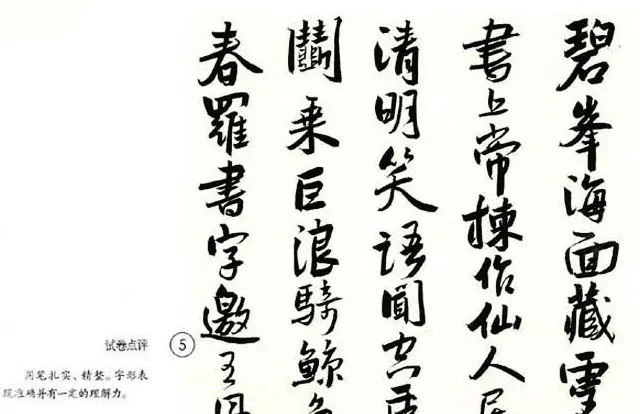 碧峯海面藏靈
書上帝揀作仙人居
清明笑語聞空
鬭乘巨浪騎鯨魚
春羅書字邀王母
试卷点评 ⑤
用笔扎实、精整。字形表
现准确并有一定的理解力。